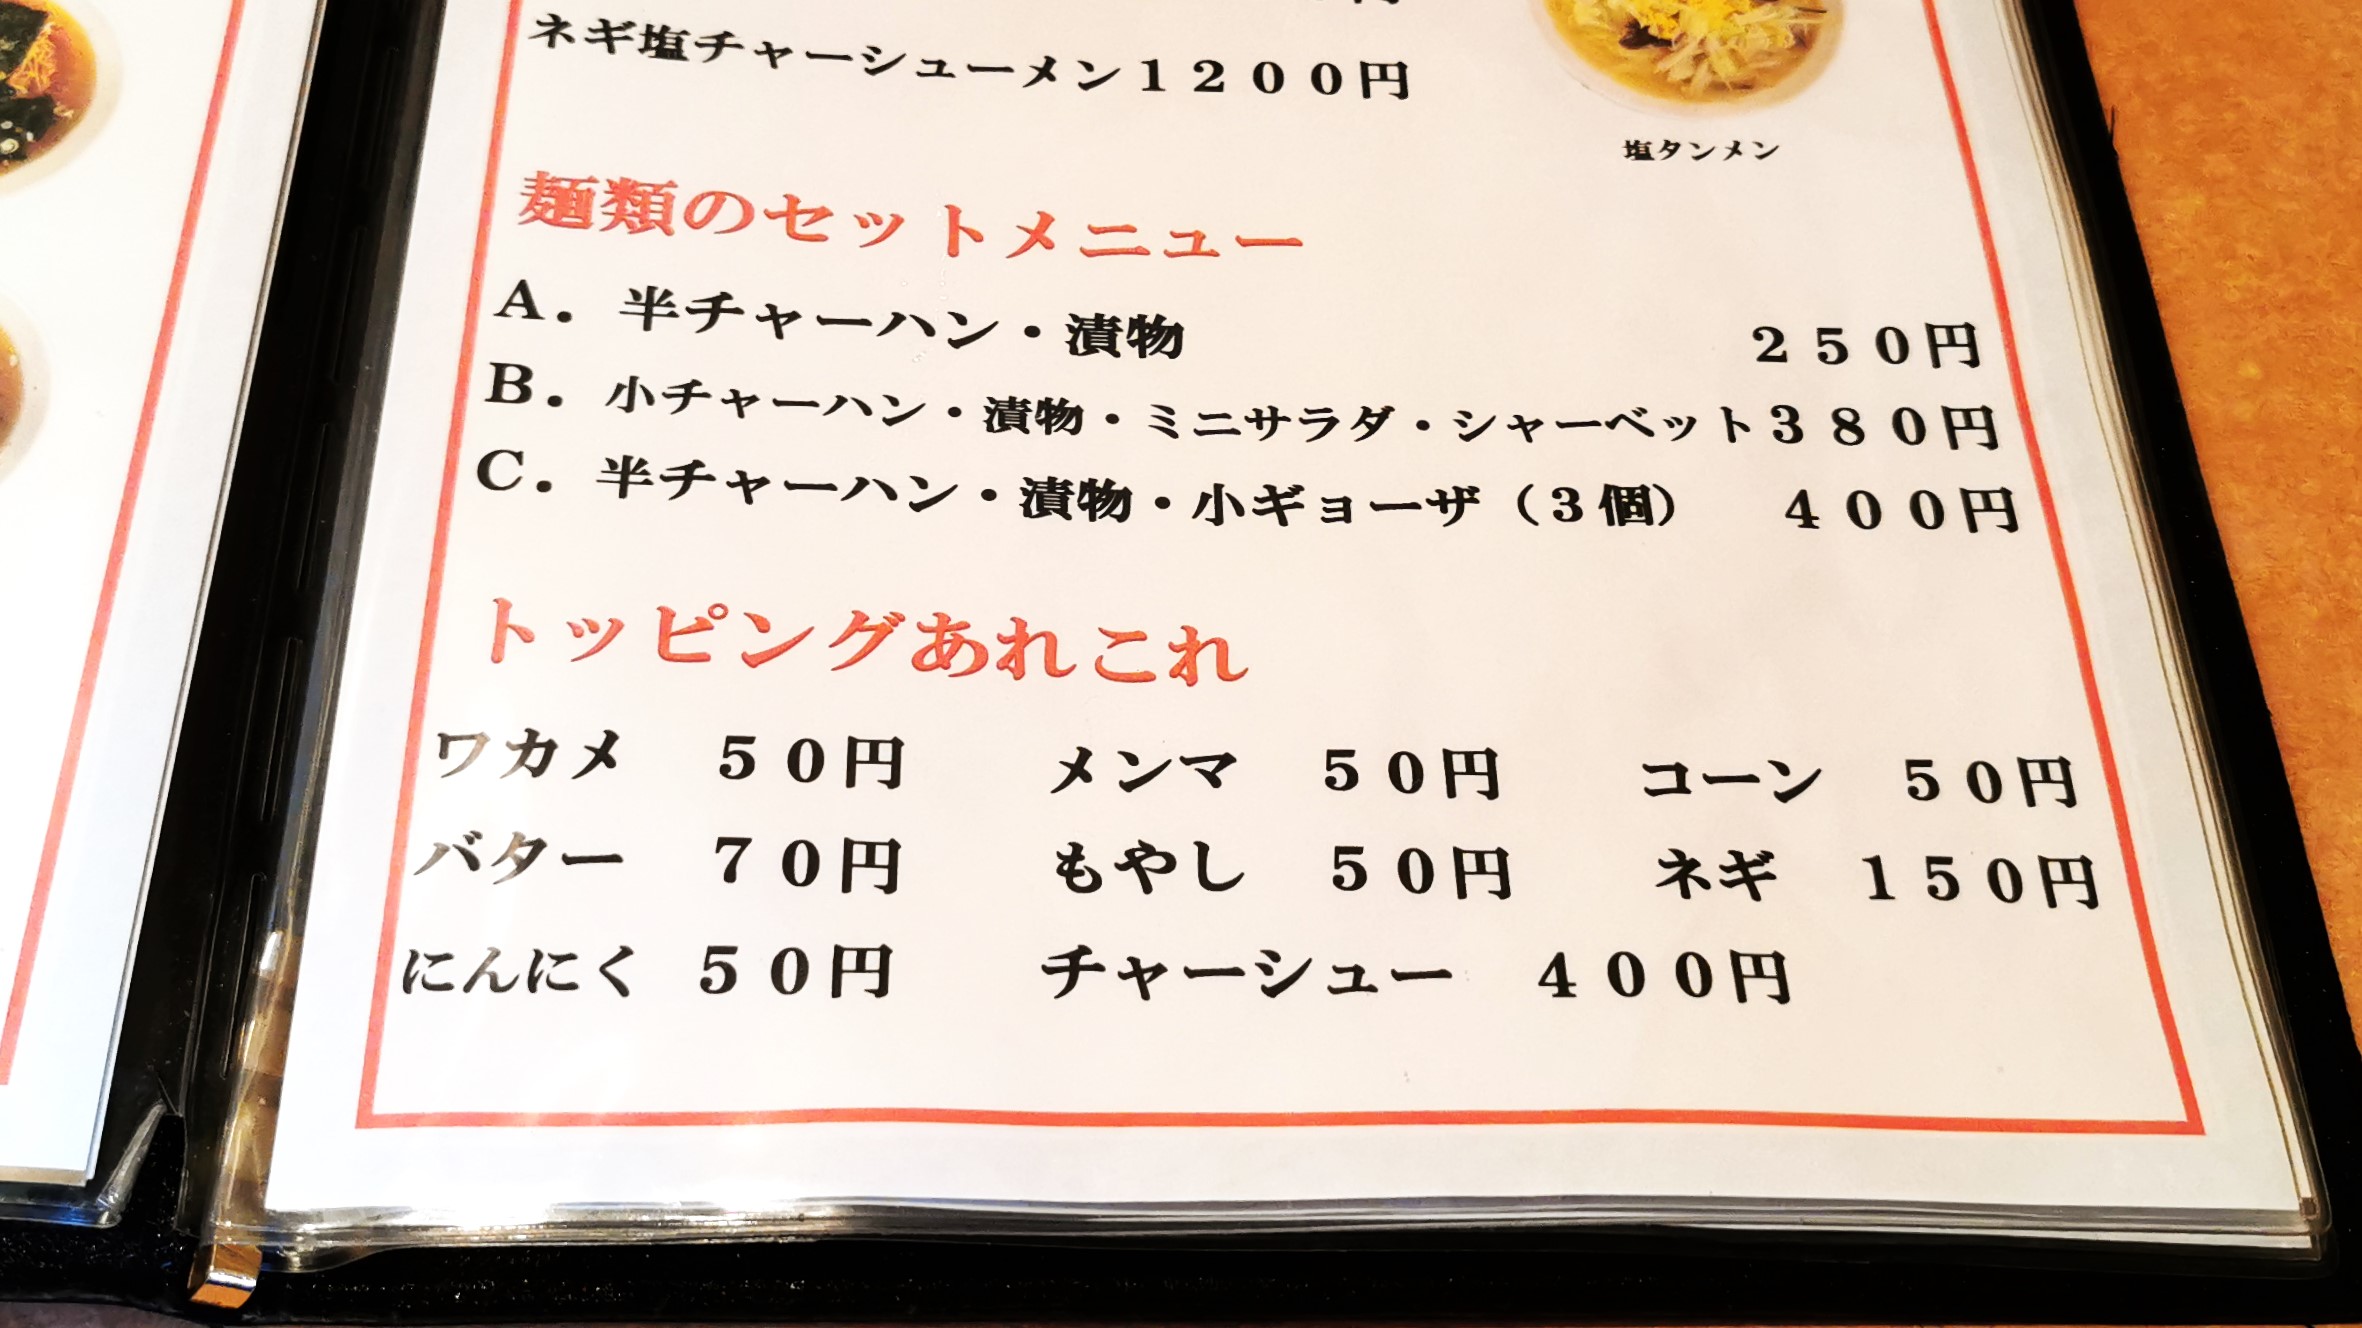 ネギ塩チャーシューメン１２００円
塩タンメン
麺類のセットメニュー
A．半チャーハン・漬物　２５０円
B．小チャーハン・漬物・ミニサラダ・シャーベット３８０円
C．半チャーハン・漬物・小ギョーザ（３個）　４００円
トッピングあれこれ
ワカメ　５０円　メンマ　５０円　コーン　５０円
バター　７０円　もやし　５０円　ネギ　１５０円
にんにく　５０円　チャーシュー　４００円